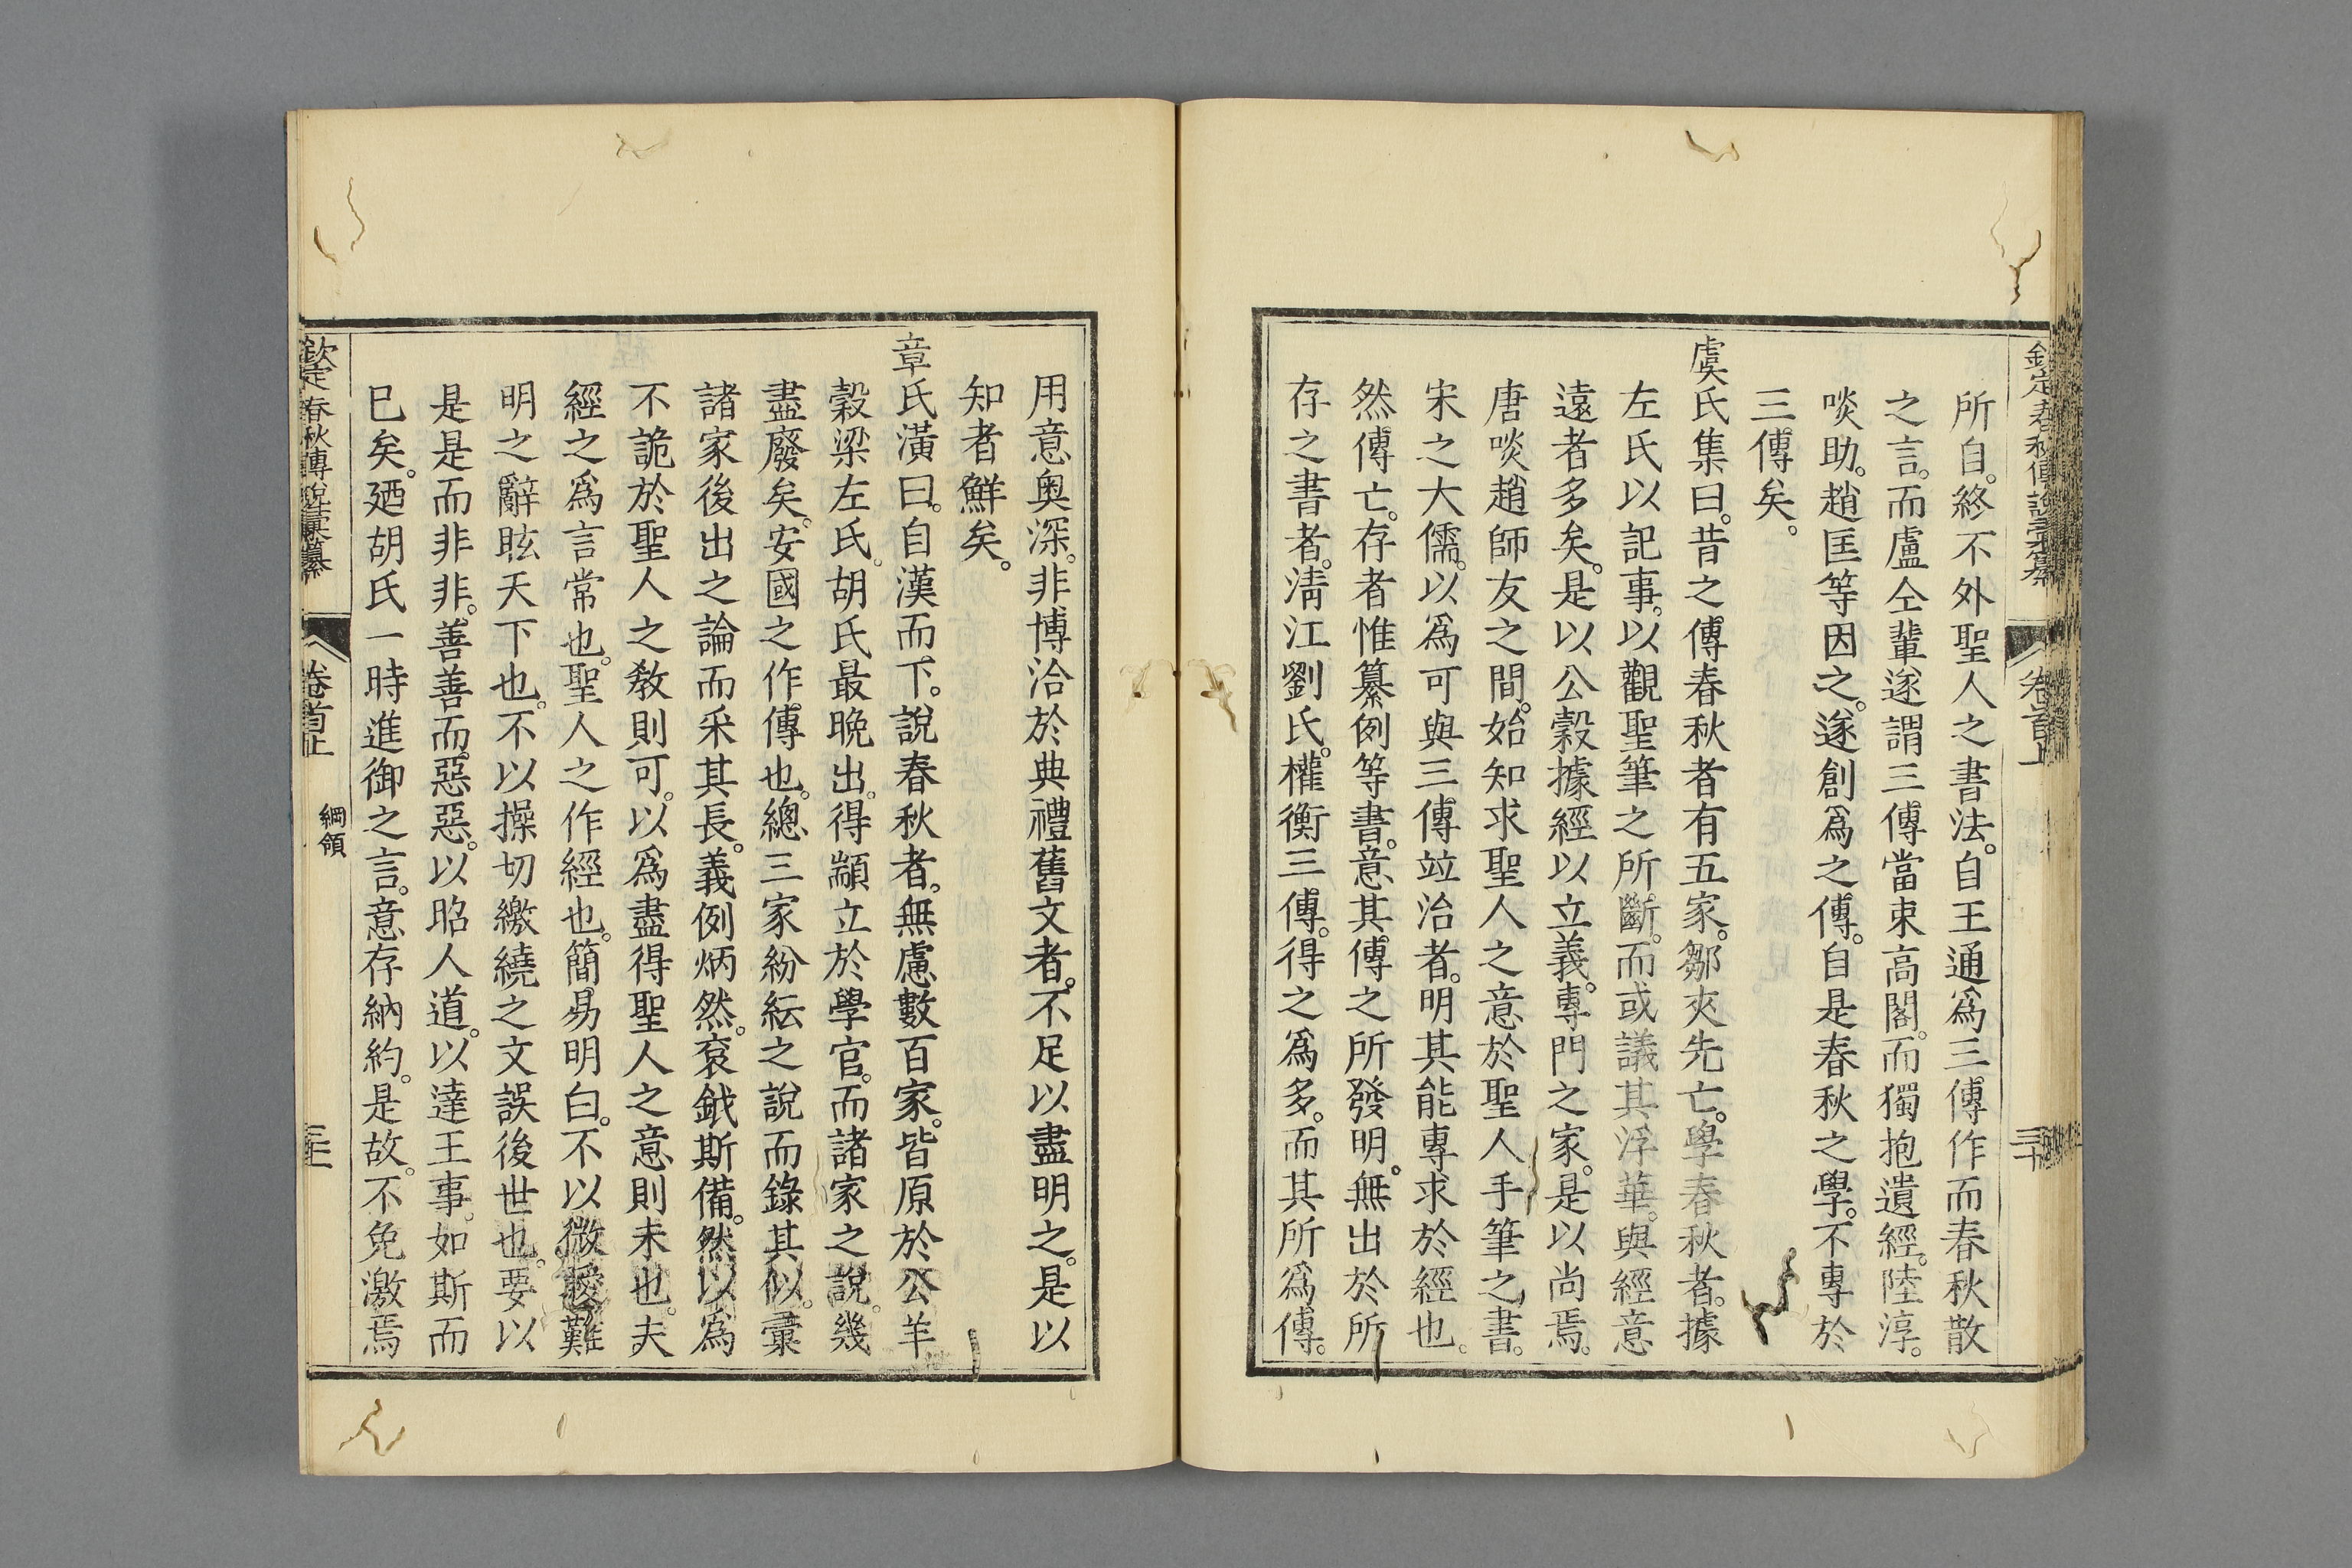 欽定春秋傳說彙纂 卷首上 三十
所自。終不外聖人之書法。自王通爲三傳作而春秋散
之言。而盧仝輩遂謂三傳當束高閣。而獨抱遺經。陸淳。
啖助。趙匡等因之。遂創爲之傳。自是春秋之學。不專於
三傳矣。
虞氏集曰。昔之傳春秋者有五家。鄒夾先亡。學春秋者。據
左氏以記事。以觀聖筆之所斷。而或議其浮華。與經意
遠者多矣。是以公穀據經以立義。專門之家。是以尚焉。
唐啖趙師友之間。始知求聖人之意於聖人手筆之書。
宋之大儒。以爲可與三傳竝治者。明其能專求於經也。
然傳亡。存者惟纂例等書。意其傳之所發明。無出於所
存之書者。淸江劉氏。權衡三傳。得之爲多。而其所爲傳。
用意奥深。非博洽於典禮舊文者。不足以盡明之。是以
知者鮮矣。
章氏潢曰。自漢而下。說春秋者。無慮數百家。皆原於公羊
穀梁左氏。胡氏最晩出。得顓立於學官。而諸家之說。幾
盡廢矣。安國之作傳也。總三家紛紜之說而錄其似。彙
諸家後出之論而采其長。義例炳然。袞鉞斯備。然以爲
不詭於聖人之敎則可。以爲盡得聖人之意則未也。夫
經之爲言常也。聖人之作經也。簡易明白。不以微曖難
明之辭眩天下也。不以操切繳繞之文誤後世也。要以
是是而非非。善善而。惡惡。以昭人道。以達王事。如斯而
已矣。廼胡氏一時進御之言。意存納約。是故。不免激焉
欽定春秋傳說彙纂 卷首上 綱領 三十一